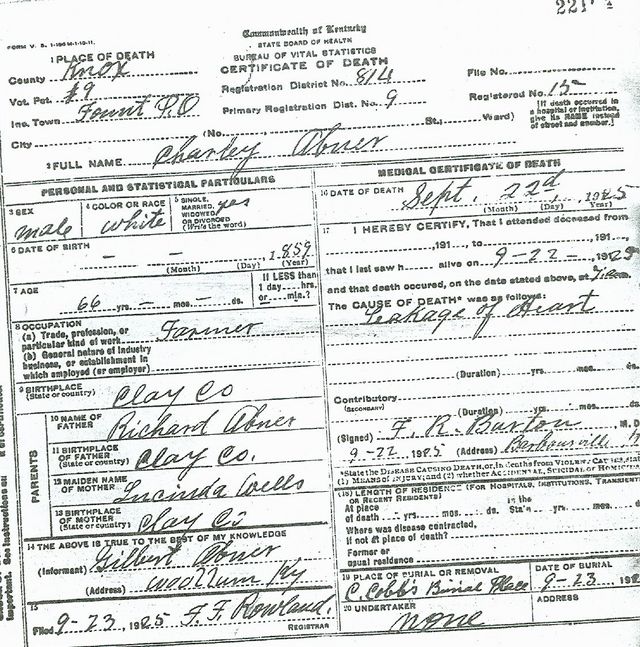 221
Commonwealth of Kentucky
STATE BOARD OF HEALTH
BUREAU OF VITAL STATISTICS
CERTIFICATE OF DEATH
FORM V. S. 1-
1 PLACE OF DEATH
County Knox
Vot. Pct. #9
Inc. Town Fount P.O
City
Registration District No. 814
Primary Registration Dist. No. 9
File No.
Registered No. 15
(No. St., Ward)
[If death occurred in a hospital or institution, give its NAME instead of street and number.]
2 FULL NAME Charley Abner
PERSONAL AND STATISTICAL PARTICULARS
3 SEX male
4 COLOR OR RACE white
5 SINGLE, MARRIED, WIDOWED OR DIVORCED (Write the word) yes
6 DATE OF BIRTH — — 1859
(Month) (Day) (Year)
7 AGE 66 yrs. — mos. — ds.
If LESS than 1 day hrs. or min.?
8 OCCUPATION
(a) Trade, profession, or particular kind of work Farmer
(b) General nature of industry business, or establishment in which employed (or employer)
9 BIRTHPLACE (State or country) Clay Co
PARENTS
10 NAME OF FATHER Richard Abner
11 BIRTHPLACE OF FATHER (State or country) Clay Co.
12 MAIDEN NAME OF MOTHER Lucinda Wells
13 BIRTHPLACE OF MOTHER (State or country) Clay Co
14 THE ABOVE IS TRUE TO THE BEST OF MY KNOWLEDGE
(Informant) Gilbert Abner
(Address) Woollum Ky
15
Filed 9-23, 1925 F. F. Rowland.
REGISTRAR
MEDICAL CERTIFICATE OF DEATH
16 DATE OF DEATH Sept. 22d, 1925
(Month) (Day) (Year)
17 I HEREBY CERTIFY, That I attended deceased from
, 191 , to , 191 ,
that I last saw h alive on 9-22-, 1925
and that death occured, on the date stated above, at 7 a.m.
The CAUSE OF DEATH* was as follows:
Leakage of Heart
(Duration) yrs. mos. ds.
Contributory (SECONDARY)
(Duration) yrs. mos. ds.
(Signed) F. R. Burton, M. D.
9-22 1925 (Address) Barbourville
*State the DISEASE CAUSING DEATH, or, in deaths from VIOLENT CAUSES, state
(1) MEANS OF INJURY; and (2) whether ACCIDENTAL, SUICIDAL OR HOMICID
(18) LENGTH OF RESIDENCE (FOR HOSPITALS, INSTITUTIONS, TRANSIENT
OR RECENT RESIDENTS)
At place of death yrs. mos. ds. In the State yrs. mos. ds.
Where was disease contracted, if not at place of death?
Former or usual residence
19 PLACE OF BURIAL OR REMOVAL C. Cobb's Burial Place
DATE OF BURIAL 9-23, 192
20 UNDERTAKER none
ADDRESS
important. See instructions on